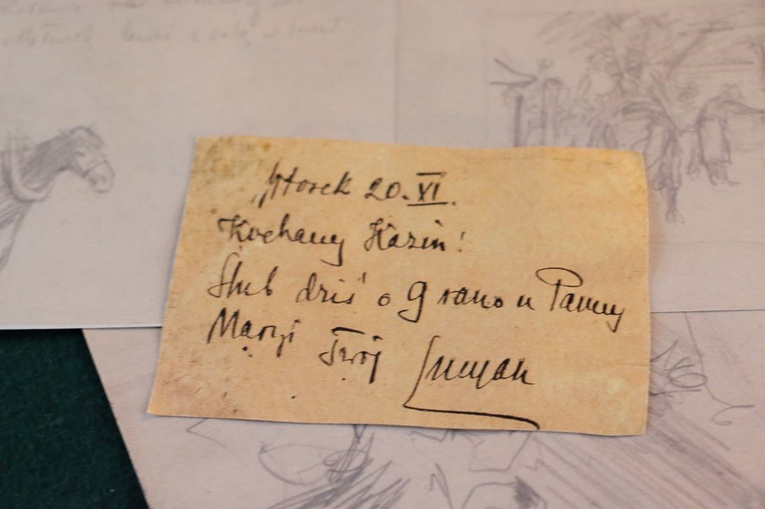 Wtorek 20.XI.
Kochany Kazin!
Ślub dziś o 9 rano u Panny
Maryi Twój Lucyan